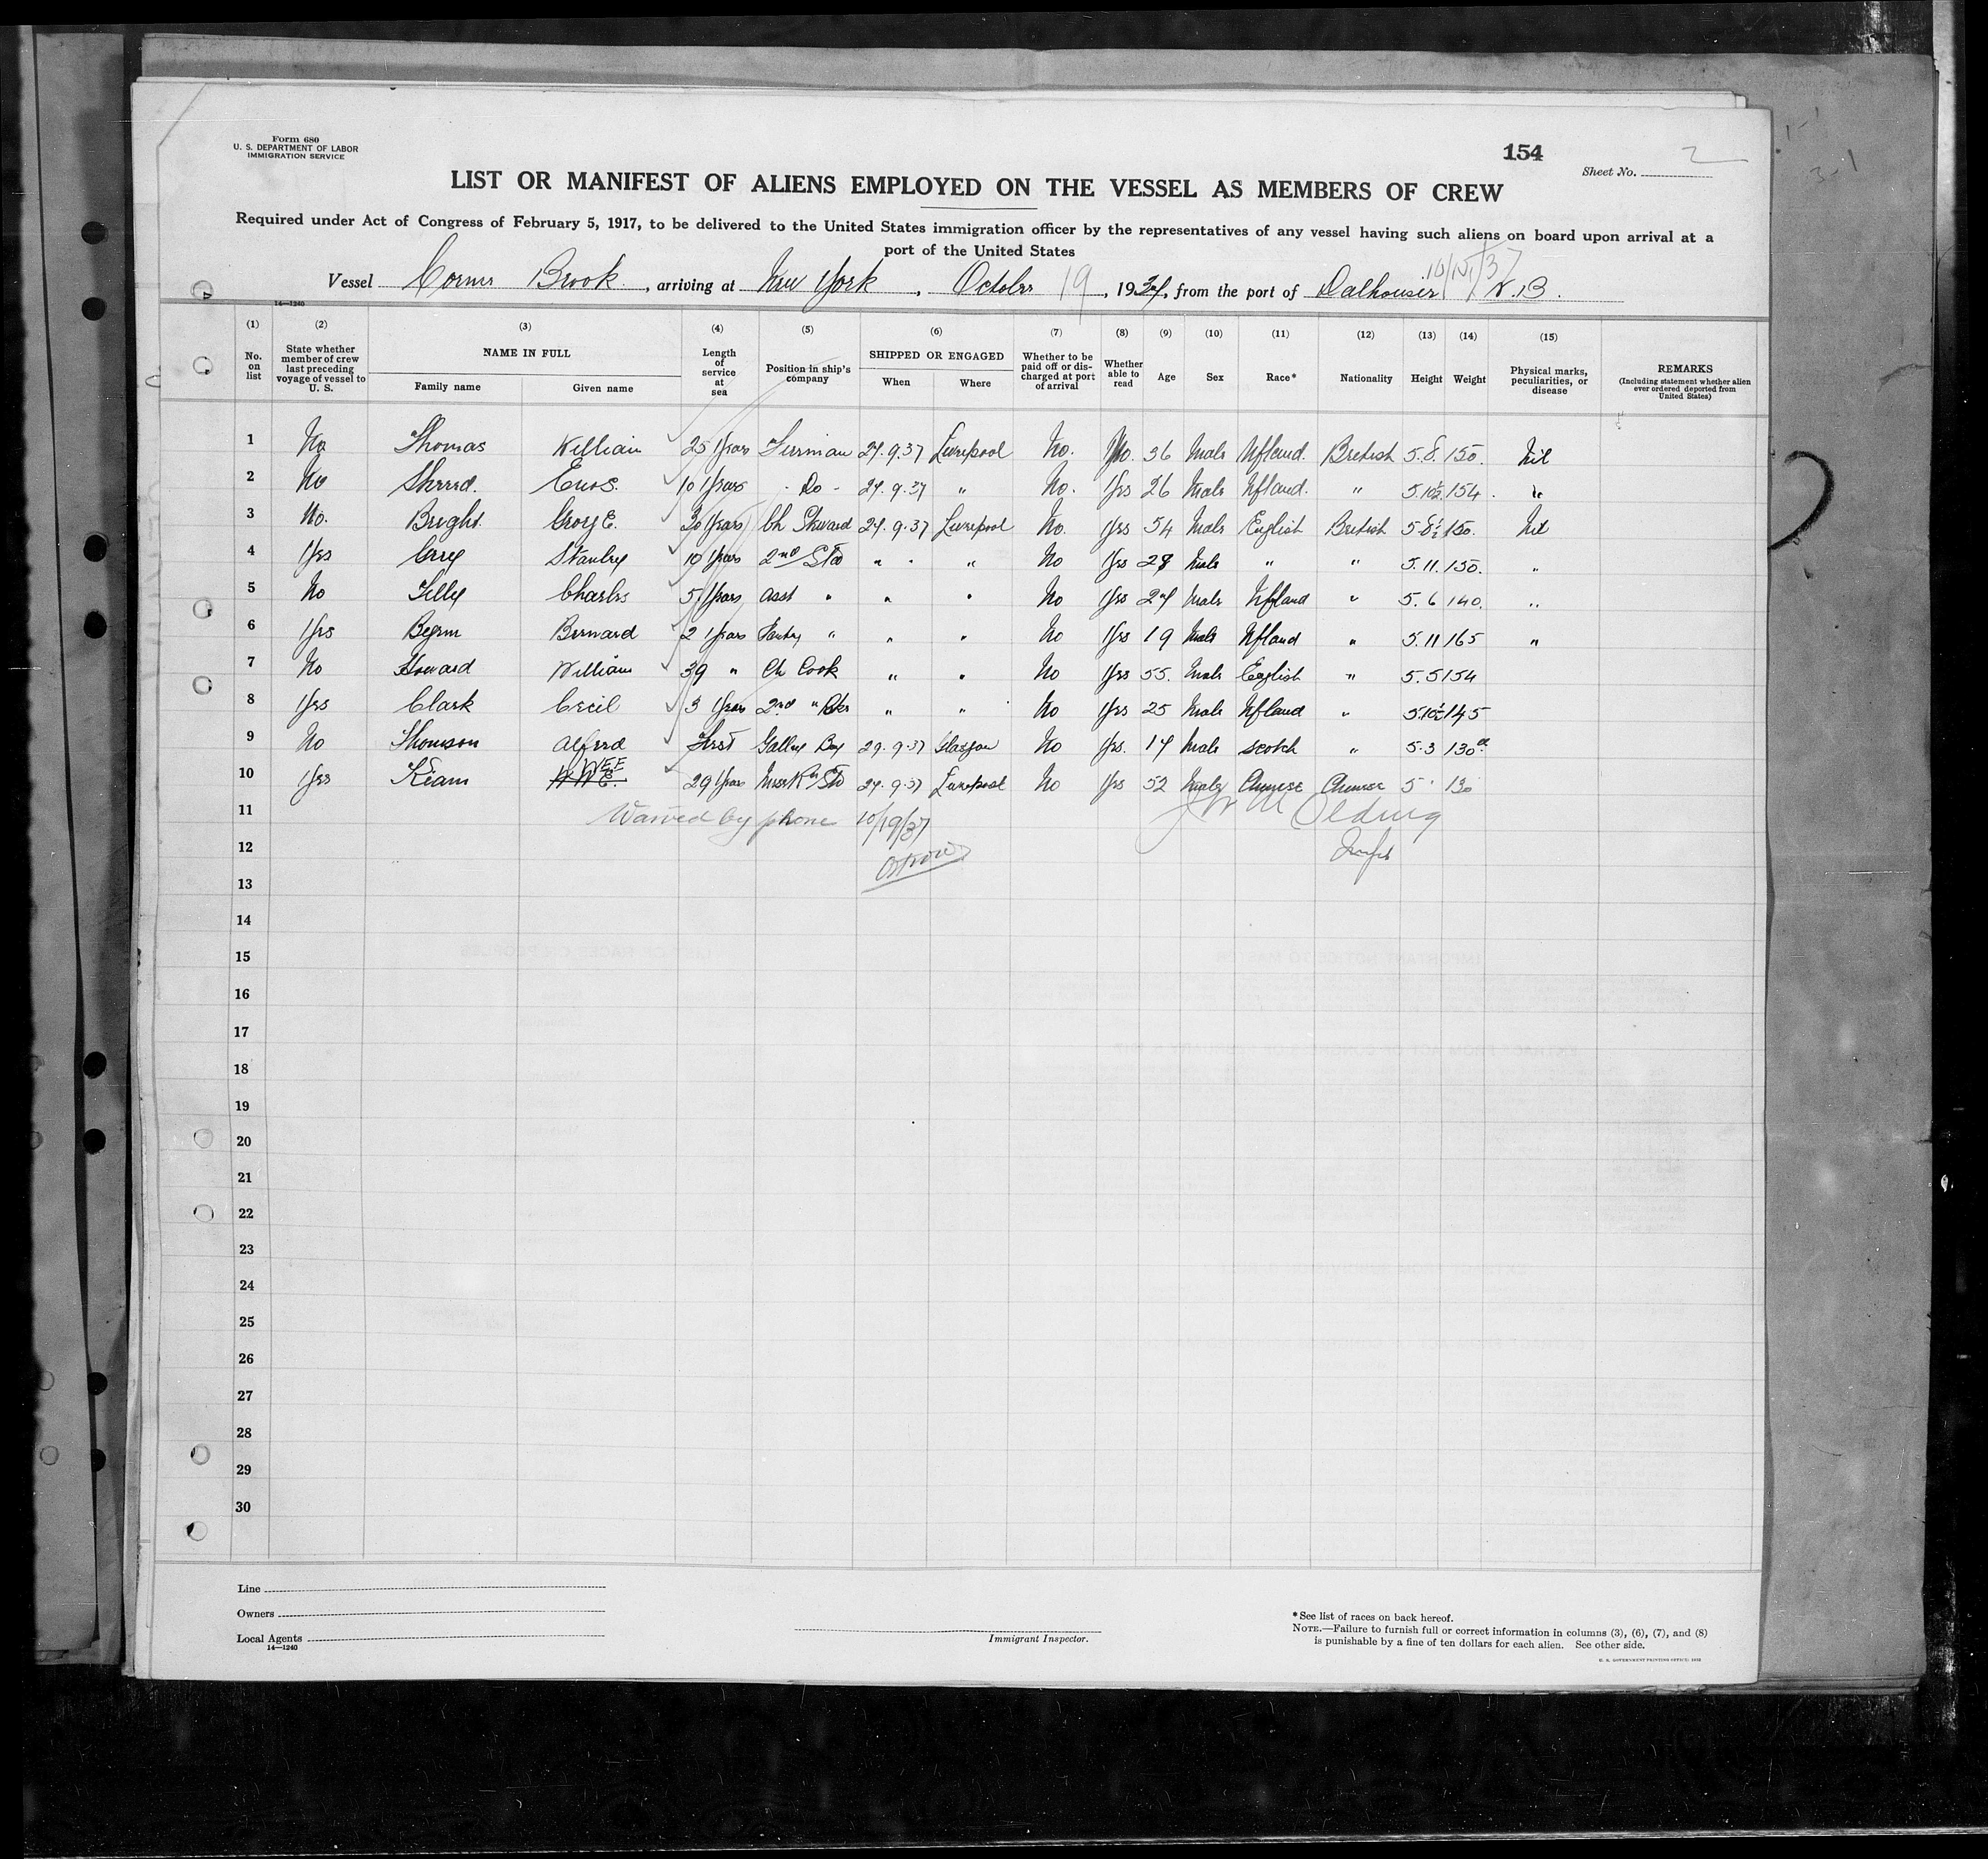 Form 680
U. S. DEPARTMENT OF LABOR
IMMIGRATION SERVICE
154
Sheet No. 2
LIST OR MANIFEST OF ALIENS EMPLOYED ON THE VESSEL AS MEMBERS OF CREW
Required under Act of Congress of February 5, 1917, to be delivered to the United States immigration officer by the representatives of any vessel having such aliens on board upon arrival at a
port of the United States
Vessel Corner Brook, arriving at New York, October 19, 1937, from the port of Dalhousie N.B.
14—1240
(1) (2) (3) (4) (5) (6) (7) (8) (9) (10) (11) (12) (13) (14) (15)
No. on list
State whether member of crew last preceding voyage of vessel to U. S.
NAME IN FULL
Family name
Given name
Length of service at sea
Position in ship's company
SHIPPED OR ENGAGED
When
Where
Whether to be paid off or discharged at port of arrival
Whether able to read
Age
Sex
Race*
Nationality
Height
Weight
Physical marks, peculiarities, or disease
REMARKS
(Including statement whether alien ever ordered deported from United States)
1 No Thomas William 25 Years Fireman 27.9.37 Liverpool No. No. 36 Male Nfland. British 5.8. 150. Nil
2 No Enos. 10 Years - Do - 27.9.37 " No. Yes 26 Male Nfland. " 5.10½ 154. "
3 No. Bright George E. 30 Years Ch Steward 27.9.37 Liverpool No. Yes 54 Male English British 5 8½ 150. Nil
4 Yes Stanley 10 Years 2nd Std " " " No Yes 28 Male " " 5.11. 150. "
5 No Tilly Charles 5 Years Asst " " " No Yes 27 Male Nfland " 5.6 140. "
6 Yes Bernard 2 Years Pantry " " " No Yes 19 Male Nfland " 5.11 165 "
7 No Howard William 39 " Ch Cook " " No Yes 55. Male English " 5.5 154
8 Yes Clark Cecil 3 Years 2nd " " " No Yes 25 Male Nfland " 5.10½ 145
9 No Thomson Alfred First Galley Boy 29.9.37 Glasgow No Yes. 17 Male Scotch " 5.3 130
10 Yes Keam WEE 29 Years Mess Rm Std 27.9.37 Liverpool No Yes 52 Male Chinese Chinese 5 130
11 Waived by phone 10/19/37
12
13
14
15
16
17
18
19
20
21
22
23
24
25
26
27
28
29
30
Line
Owners
Local Agents
14—1240
Immigrant Inspector.
*See list of races on back hereof.
NOTE.—Failure to furnish full or correct information in columns (3), (6), (7), and (8)
is punishable by a fine of ten dollars for each alien. See other side.